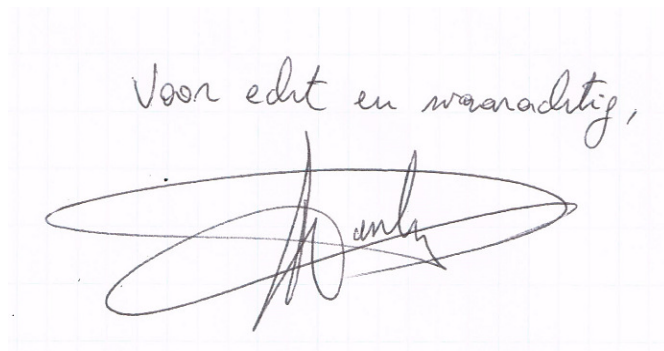 Voor echt en waarachtig,